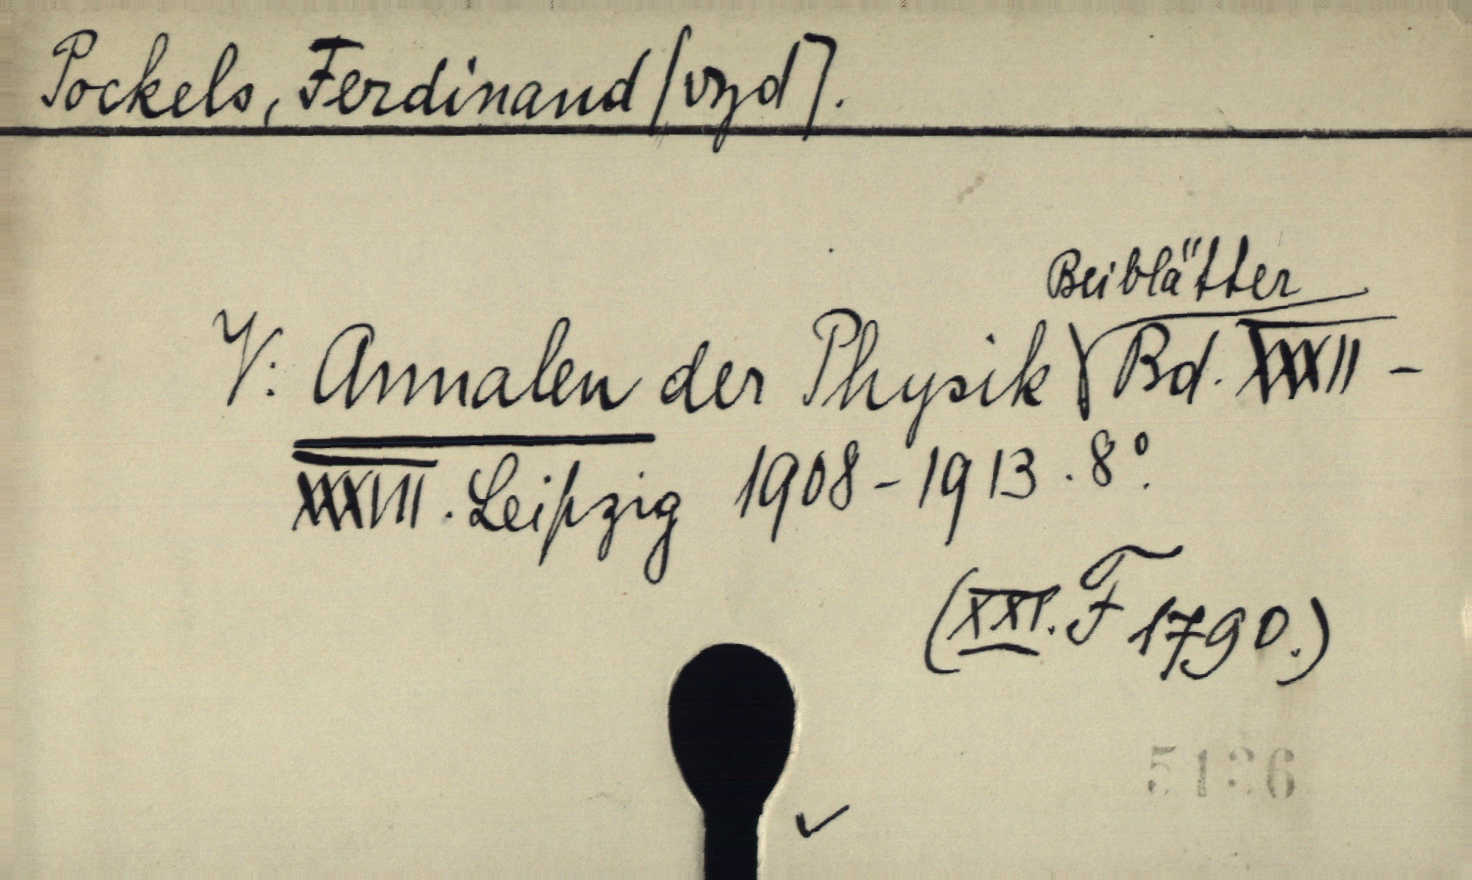 Pockels, Ferdinand [vyd].
Beiblätter
V: Annalen der Physik Bd. XXXII -
XXXVII. Leipzig 1908-1913. 8°.
(XXI. F 1790.)